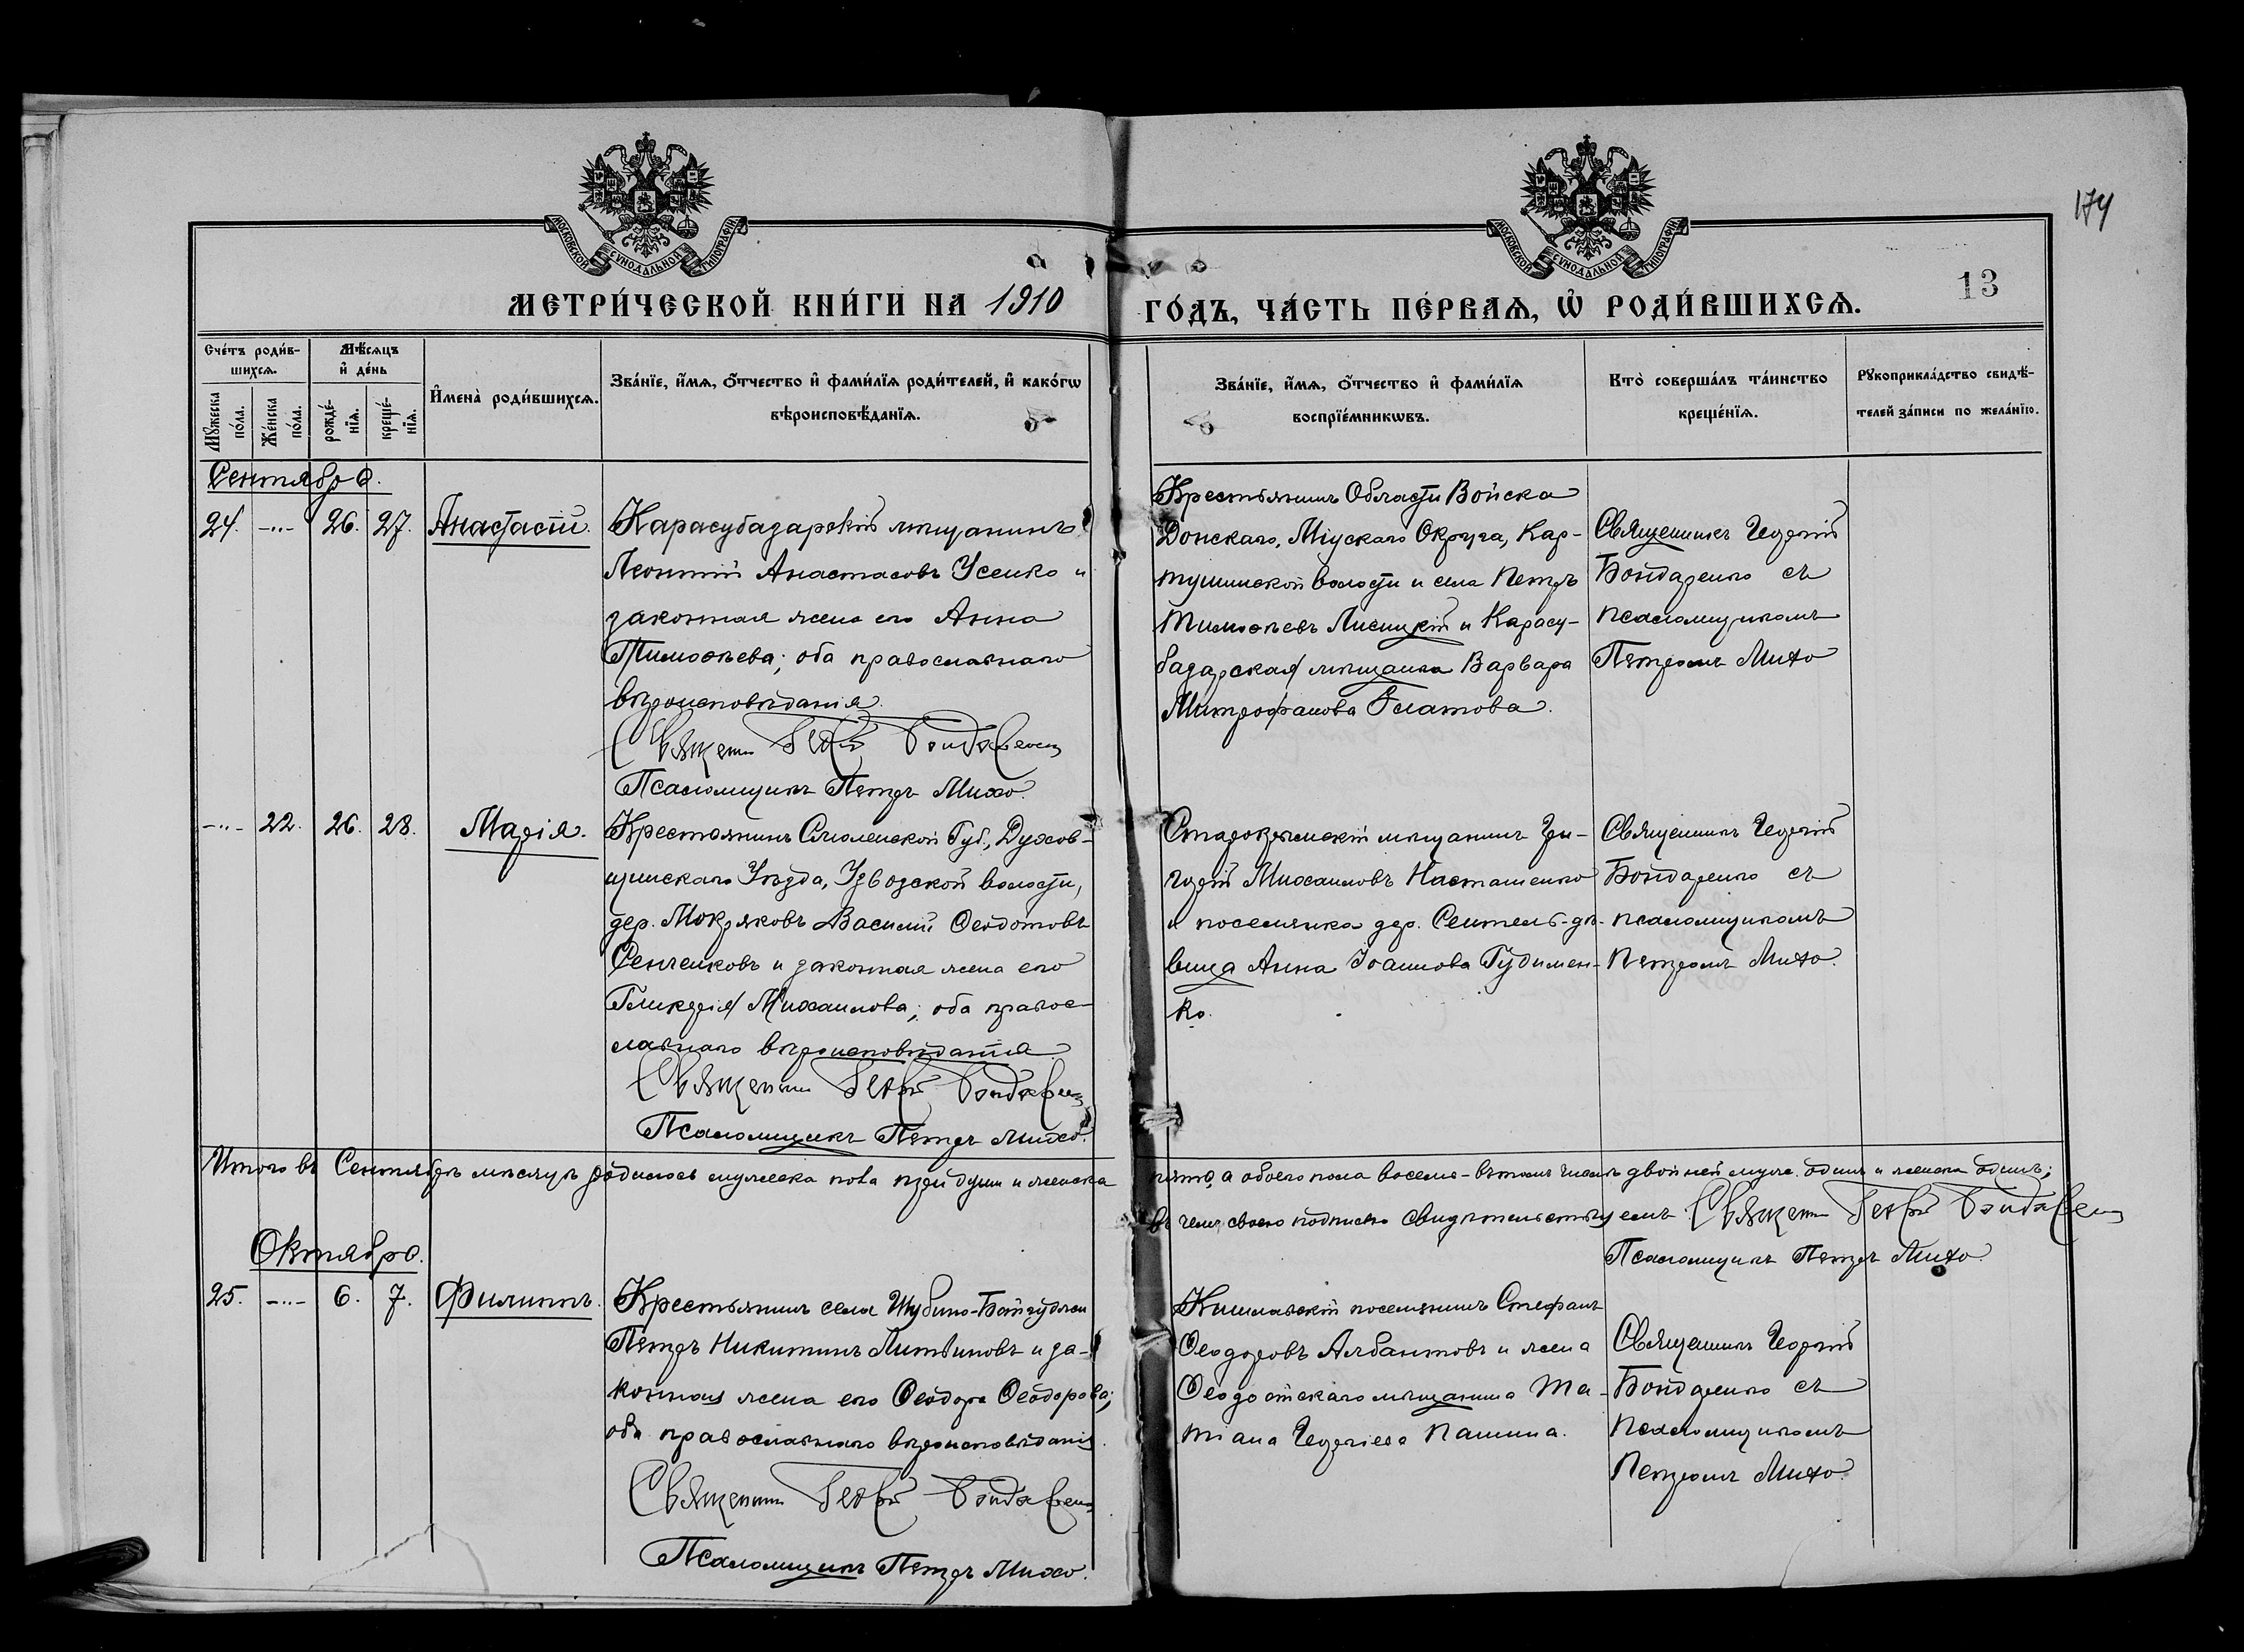 174
МОСКОВСКОЙ СѴНОДАЛЬНОЙ ТИПОГРАФІИ
МОСКОВСКОЙ СѴНОДАЛЬНОЙ ТИПОГРАФІИ
13
МЕТРИ́ЧЕСКОЙ КНИ́ГИ НА 1910 ГО́ДЪ, ЧА́СТЬ ПЕ́РВАѦ, Ѡ҆ РОДИ́ВШИХСѦ.
Сче́тъ роди́в-
шихсѧ.
Мꙋжеска по́ла.
Же́нска по́ла.
Мѣ́сѧцъ
и҆ де́нь
рожде́-
нїѧ.
креще́-
нїѧ.
И҆мена̀ роди́вшихсѧ.
Зва́нїе, и҆́мѧ, ѻ҆́тчество и҆ фами́лїѧ роди́телей, и҆ како́гѡ
вѣроисповѣ́данїѧ.
Зва́нїе, и҆́мѧ, ѻ҆́тчество и҆ фами́лїѧ
воспрїе́мникѡвъ.
Кто̀ соверша́лъ та́инство
креще́нїѧ.
Рꙋкоприкла́дство свидѣ́-
телей за́писи по жела́нїю.
Сентябрь.
24. -..- 26. 27. Анастасій.
Карасубазарскій мѣщанинъ
Леонтій Анастасовъ Усенко и
законная жена его Анна
Тимоѳѣева; оба православнаго
вѣроисповѣданія.
Священникъ Георгій Бондаренко
Псаломщикъ Петръ Михо.
Крестьянинъ Области Войска
Донскаго, Міускаго Округа, Кар-
тушинской волости и села Петръ
Тимоѳѣевъ Лисицкій и Карасу-
базарская мѣщанка Варвара
Митрофанова
Священникъ Георгій
Бондаренко съ
псаломщикомъ
Петромъ Михо
-..- 22. 26. 28. Марія.
Крестьянинъ Смоленской Губ., Духов-
щинскаго Уѣзда, Узвозской волости,
дер. Мокряковъ Василій Ѳеодотовъ
Сенченковъ и законная жена его
Гликерія Михаилова; оба правос-
лавнаго вѣроисповѣданія.
Священникъ Георгій Бондаренко
Псаломщикъ Петръ Михо.
Старокрымскій мѣщанинъ Гри-
горій Михаиловъ Наташенко
и поселянка дер. дѣ-
вица Анна Іоаннова Гудимен-
ко.
Священникъ Георгій
Бондаренко съ
псаломщикомъ
Петромъ Михо.
Итого въ Сентябрѣ мѣсяцѣ родилось мужеска пола три души и женска пять, а обоего пола восемь - въ томъ числѣ двойней муж. одинъ и женска одинъ;
въ чемъ своею подписью свидѣтельствуемъ Священникъ Георгій Бондаренко
Псаломщикъ Петръ Михо.
Октябрь.
25. -..- 6. 7. Филиппъ.
Крестьянинъ села Шубино-Байгуджи
Петръ Никитинъ Литвиновъ и за-
конная жена его Ѳеодора Ѳеодорова;
оба православнаго вѣроисповѣданія.
Священникъ Георгій Бондаренко
Псаломщикъ Петръ Михо.
Кишлавскій поселянинъ Стефанъ
Ѳеодоровъ Албантовъ и жена
Ѳеодосійскаго мѣщанина Та-
тіана Георгіева Пашина.
Священникъ Георгій
Бондаренко съ
Псаломщикомъ
Петромъ Михо.